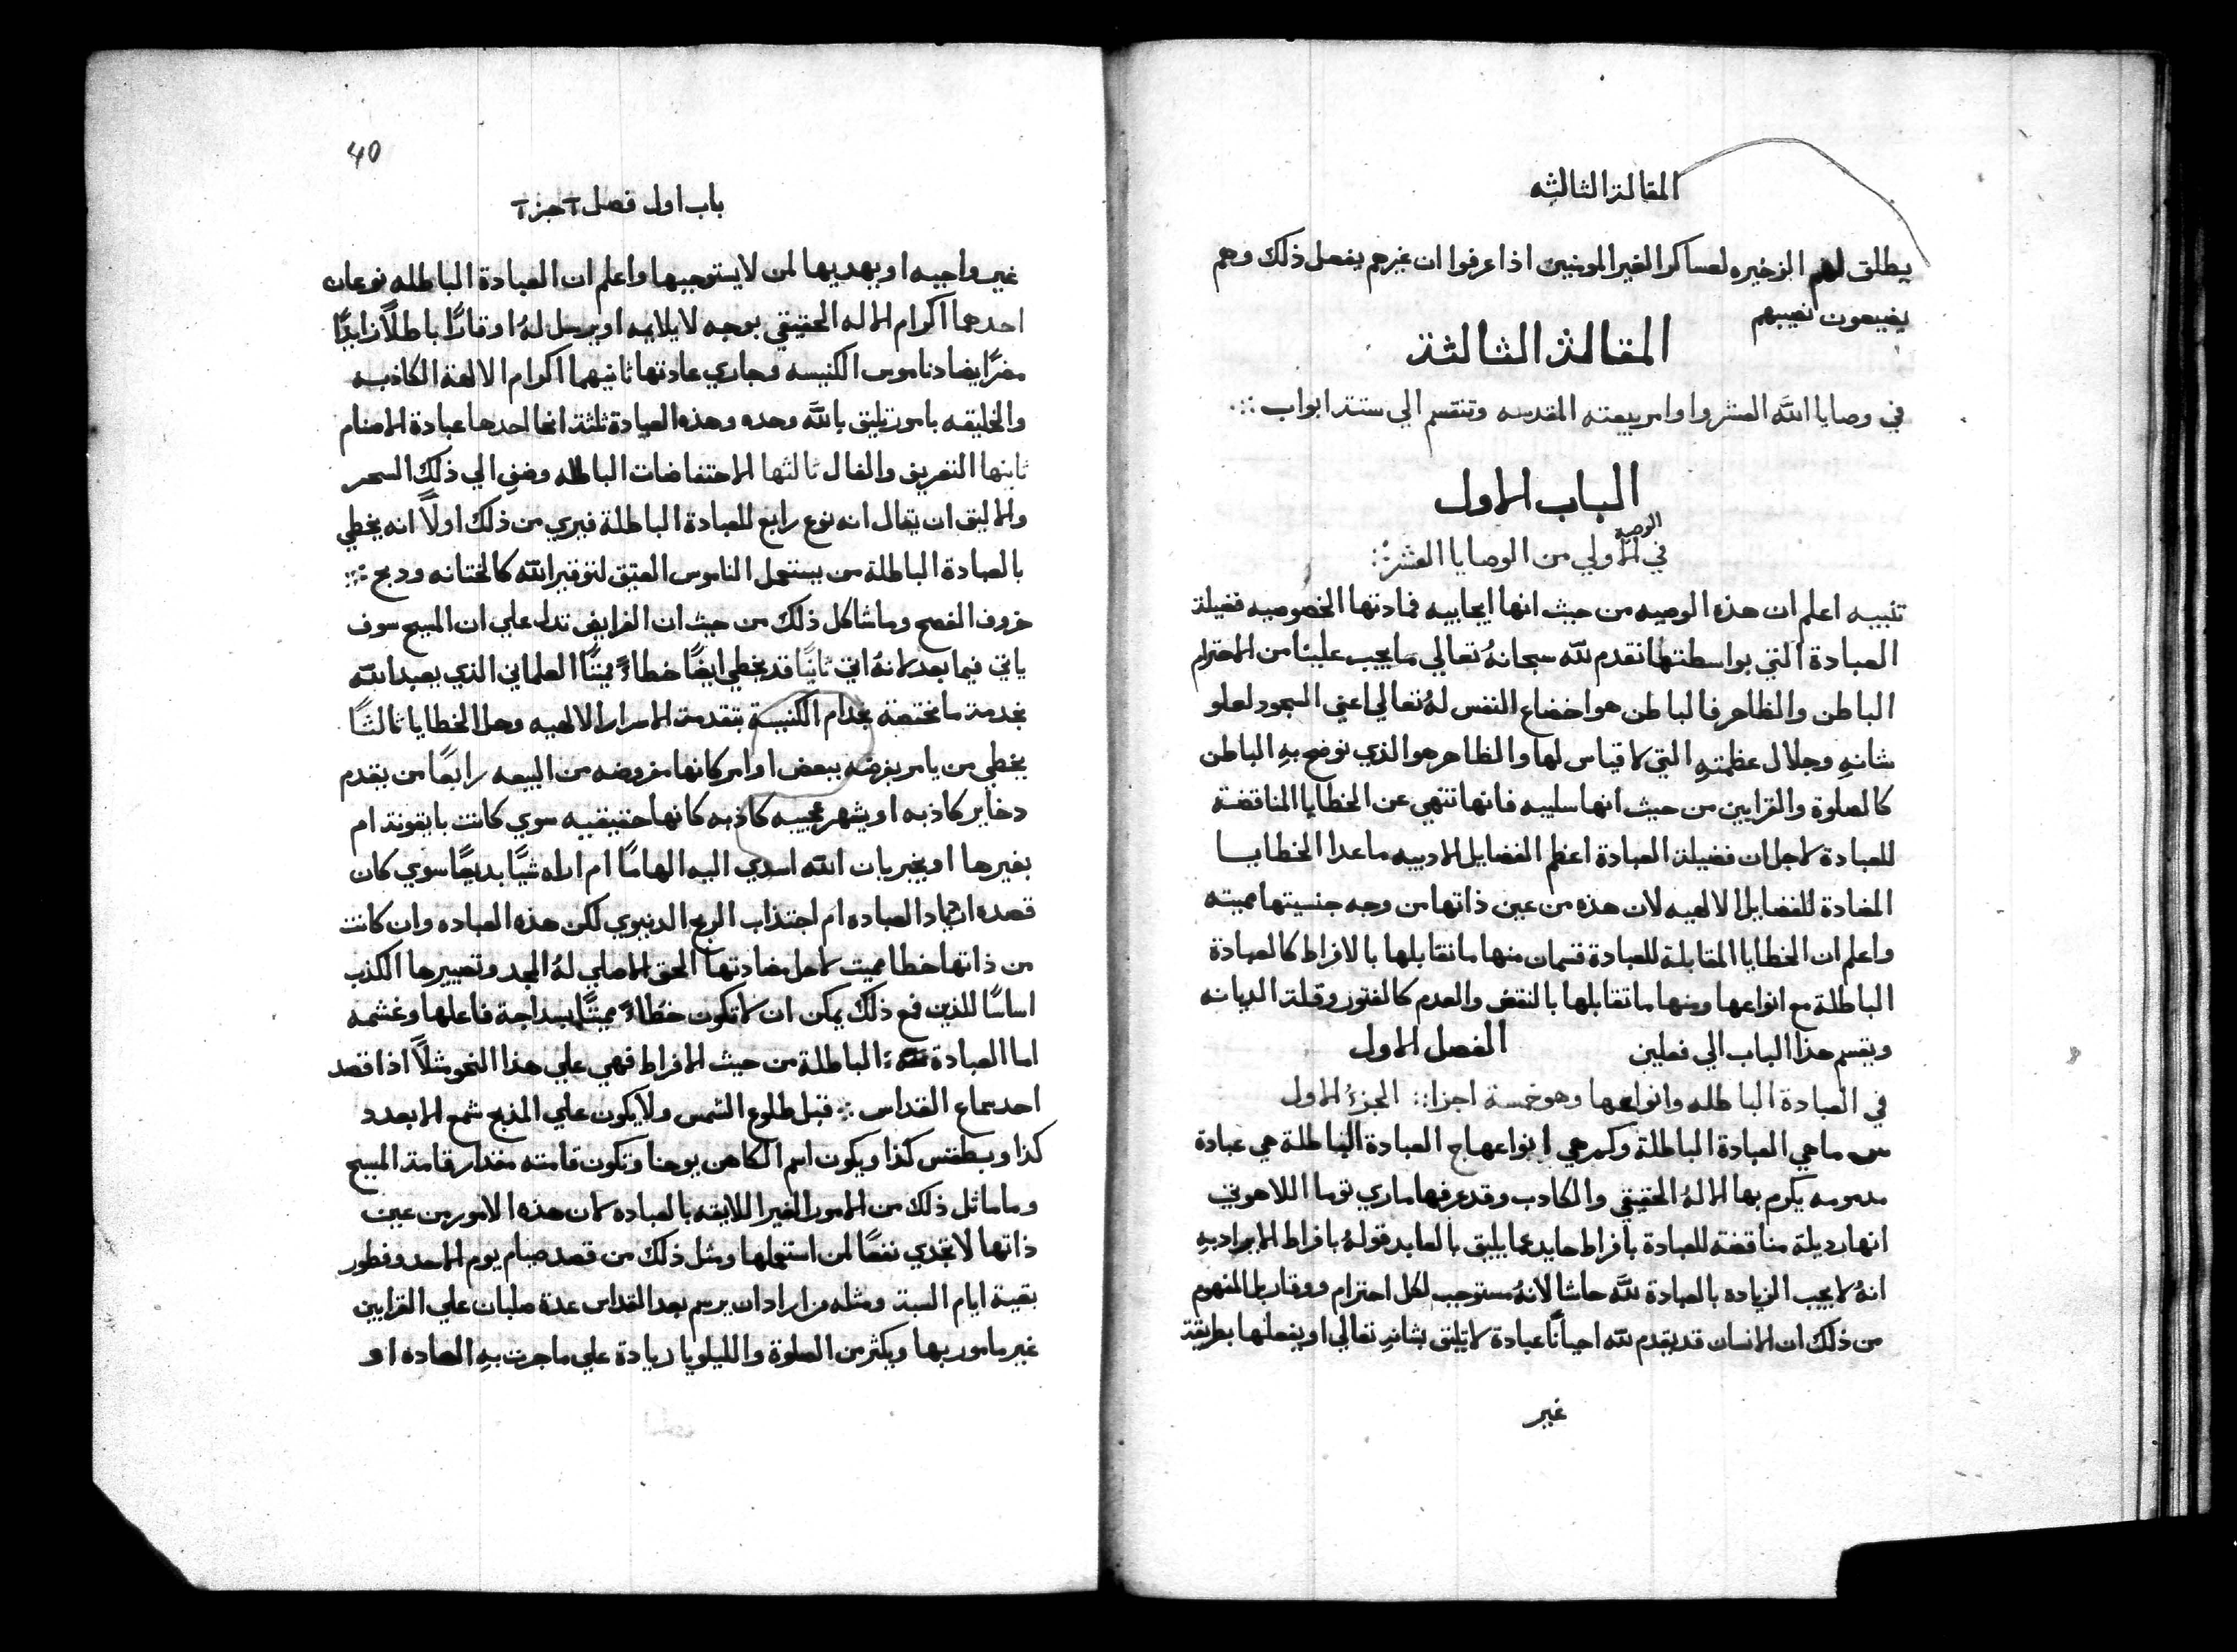 المقالة الثالثه
يطلق لهم الزخيره لعساكر الغير المومنين اذا عرفوا ان غيرهم يفعل ذلك وهم
يضيعون نصيبهم
المقالة الثالثة
في وصايا الله العشر واوامر بيعته المقدسه وتنقسم الي ستة ابواب
الباب الاول
في الوصية الاولي من الوصايا العشر
تنبيه اعلم ان هذه الوصيه من حيث انها ايجابيه فمادتها الخصوصيه فضيلة
العبادة التي بواسطتها نقدم لله سبحانهُ تعالي ما يجب علينا من الاحترام
الباطن والظاهر فالباطن هو اخضاع النفس لهُ تعالي اعني السجود لعلو
شانهِ وجلال عظمتهِ التي لا قياس لها والظاهر هو الذي نوضح بهِ الباطن
كالصلوة والقرابين من حيث انها سلبيه فانها تنهي عن الخطايا المناقضة
للعبادة لاجل ان فضيلة العبادة اعظم الفضايل الادبيه ماعدا الخطايا
المضادة للفضايل الالهيه لان هذه من عين ذاتها من وجه جنسيتها مميته
واعلم ان الخطايا المقابلة للعبادة قسمان منها ما تقابلها بالافراط كالعبادة
الباطلة مع انواعها ومنها ما تقابلها بالنقض والعدم كالفتور وقلة الديانه
ويقسم هذا الباب الي فصلين الفصل الاول
في العبادة الباطله وانواعها وهو خمسة اجزا الجزءُ الاول
س ما هي العبادة الباطلة وكم هي انواعها ج العبادة الباطلة هي عبادة
مذمومه يكرم بها الالهُ الحقيقي والكادب وقد عرفها ماري توما اللاهوتي
انها رديلة مناقضة للعبادة بافراط حايد عما يليق بالعابد قولهُ بافراط لا يراد بهِ
انهُ لا يجب الزياده بالعبادة لله حاشا لانهُ مستوجب لكل احترام ووقار بل المفهوم
من ذلك ان الانسان قد يقدم لله احيانًا عبادة لا تليق بشانهِ تعالي او يفعلها بطريقة
غير
40
باب اول فصل ا جز ا
غير واجبه او يهديها لمن لا يستوجبها واعلم ان العبادة الباطله نوعان
احدهما اكرام الاله الحقيقي بوجه لا يلايمه او يرسل لهُ اوقارًا باطلًا زايدًا
مضرًا يضاد ناموس الكنيسه وجاري عادتها ثانيهما اكرام الالهة الكاذبه
والخليقه بامور تليق بالله وحده وهذه العبادة ثلثة انحا احدها عبادة الاصنام
ثانيها التعريف والفال ثالثها الاحتفاضات الباطله وضني الي ذلك السحر
والاليق ان يقال انه نوع رابع للعبادة الباطلة فيري من ذلك اولًا انه يخطي
بالعبادة الباطلة من يستعمل الناموس العتيق لتوقير الله كالختانه ودبح
خروف الفصح وما شاكل ذلك من حيث ان الفرايض تدل علي ان المسيح سوف
ياتي فيما بعد لانهُ اتي ثانيًا قد يخطي ايضًا خطاءً مميتًا العلماني الذي يعبد الله
بخدمة ما مختصة بخدام الكنيسة بتقدمة الاسرار الالهيه وحل الخطايا ثالثًا
يخطي من يامر بفرضه ببعض اوامر كانها مفروضه من البيعه رابعًا من يقدم
دخاير كاذبه او يشهر عجيبه كاذبه كانها حقيقيه سوي كانت بايقونة ام
بغيرها او يخبر بان الله اسدي اليه الهامًا ام اراه شيًا بديعًا سوي كان
قصده اشهاد العباده ام اجتذاب الربح الدنيوي لكن هذه العباده وان كانت
من ذاتها خطا مميت لاجل مضادتها الحق الاصلي لهُ المجد وتصييرها الكذب
اساسًا للدين فمع ذلك يمكن ان لا تكون خطاءً مميتًا لسداجة فاعلها وغشمه
اما العبادة الباطلة من حيث الافراط فهي علي هذا النحو مثلًا اذا قصد
احد سماع القداس قبل طلوع الشمس ولا يكون علي المذبح شمع الا بعدد
كذا وبطقس كذا ويكون اسم الكاهن يوحنا وتكون قامته مقدار قامة المسيح
وما ماثل ذلك من الامور الغير اللايقه بالعباده لان هذه الامور من عين
ذاتها لا تجدي نفعًا لمن استعملها ومثل ذلك من قصد صيام يوم الاحد وفطور
بقية ايام السبة ومثله من اراد ان يرسم بعد القداس عدة صلبان علي القرابين
غير مامور بها ويكثر من الصلوة والليلويا زيادة علي ما جرت بهِ العاده او